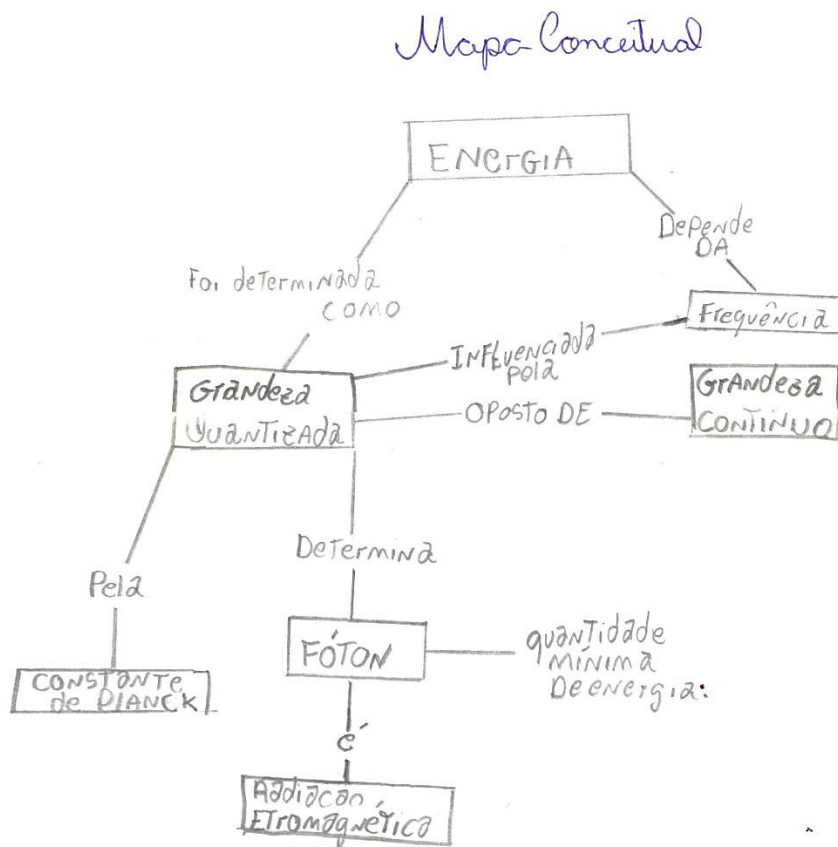 Mapa Conceitual
ENERGIA
Depende
DA
Foi determinada
COMO
Frequência
INFLUENCIADA
PELA
Grandeza
QUANTIZADA
OPOSTO DE
GRANDEZA
CONTÍNUO
Determina
Pela
FÓTON
quantidade
MÍNIMA
De energia:
CONSTANTE
de PLANCK
é
Radiacão
Etromagnética